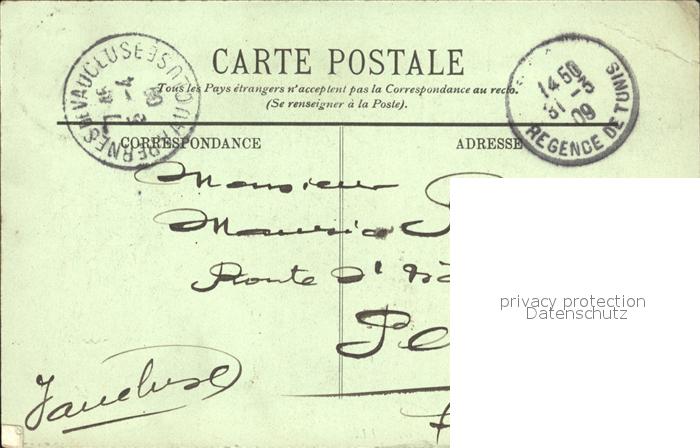 CARTE POSTALE
Tous les Pays étrangers n'acceptent pas la Correspondance au recto.
(Se renseigner à la Poste).
PERNES VAUCLUSE
14 50
31 3
09
REGENCE DE TUNIS
CORRESPONDANCE
ADRESSE
Monsieur
Maurice
Route
Pe
Vaucluse
privacy protection
Datenschutz